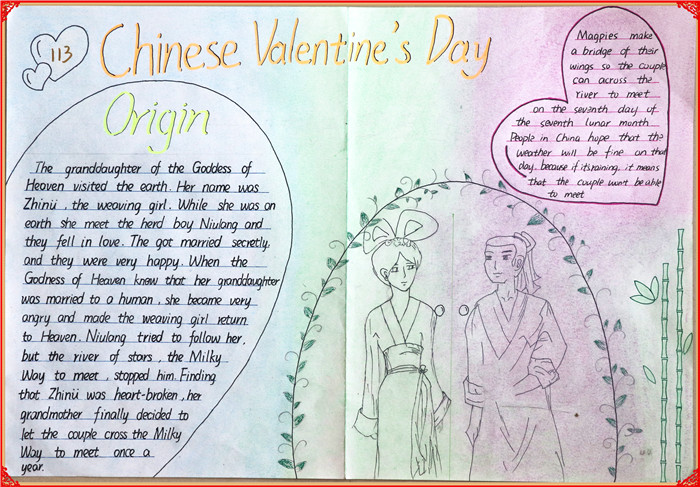 113
Chinese Valentine's Day
Origin
The granddaughter of the Goddess of
Heaven visited the earth. Her name was
Zhinü, the weaving girl. While she was on
earth she meet the herd boy Niulang and
they fell in love. The got married secretly,
and they were very happy. When the
Godness of Heaven knew that her granddaughter
was married to a human, she became very
angry and made the weaving girl return
to Heaven. Niulong tried to follow her,
but the river of stars, the Milky
Way to meet, stopped him. Finding
that Zhinü was heart-broken, her
grandmother finally decided to
let the couple cross the Milky
Way to meet once a
year.
Magpies make
a bridge of their
wings so the couple
can across the
river to meet
on the seventh day of
the seventh lunar month
People in China hope that the
weather will be fine on that
day, because if it's raining, it means
that the couple won't be able
to meet